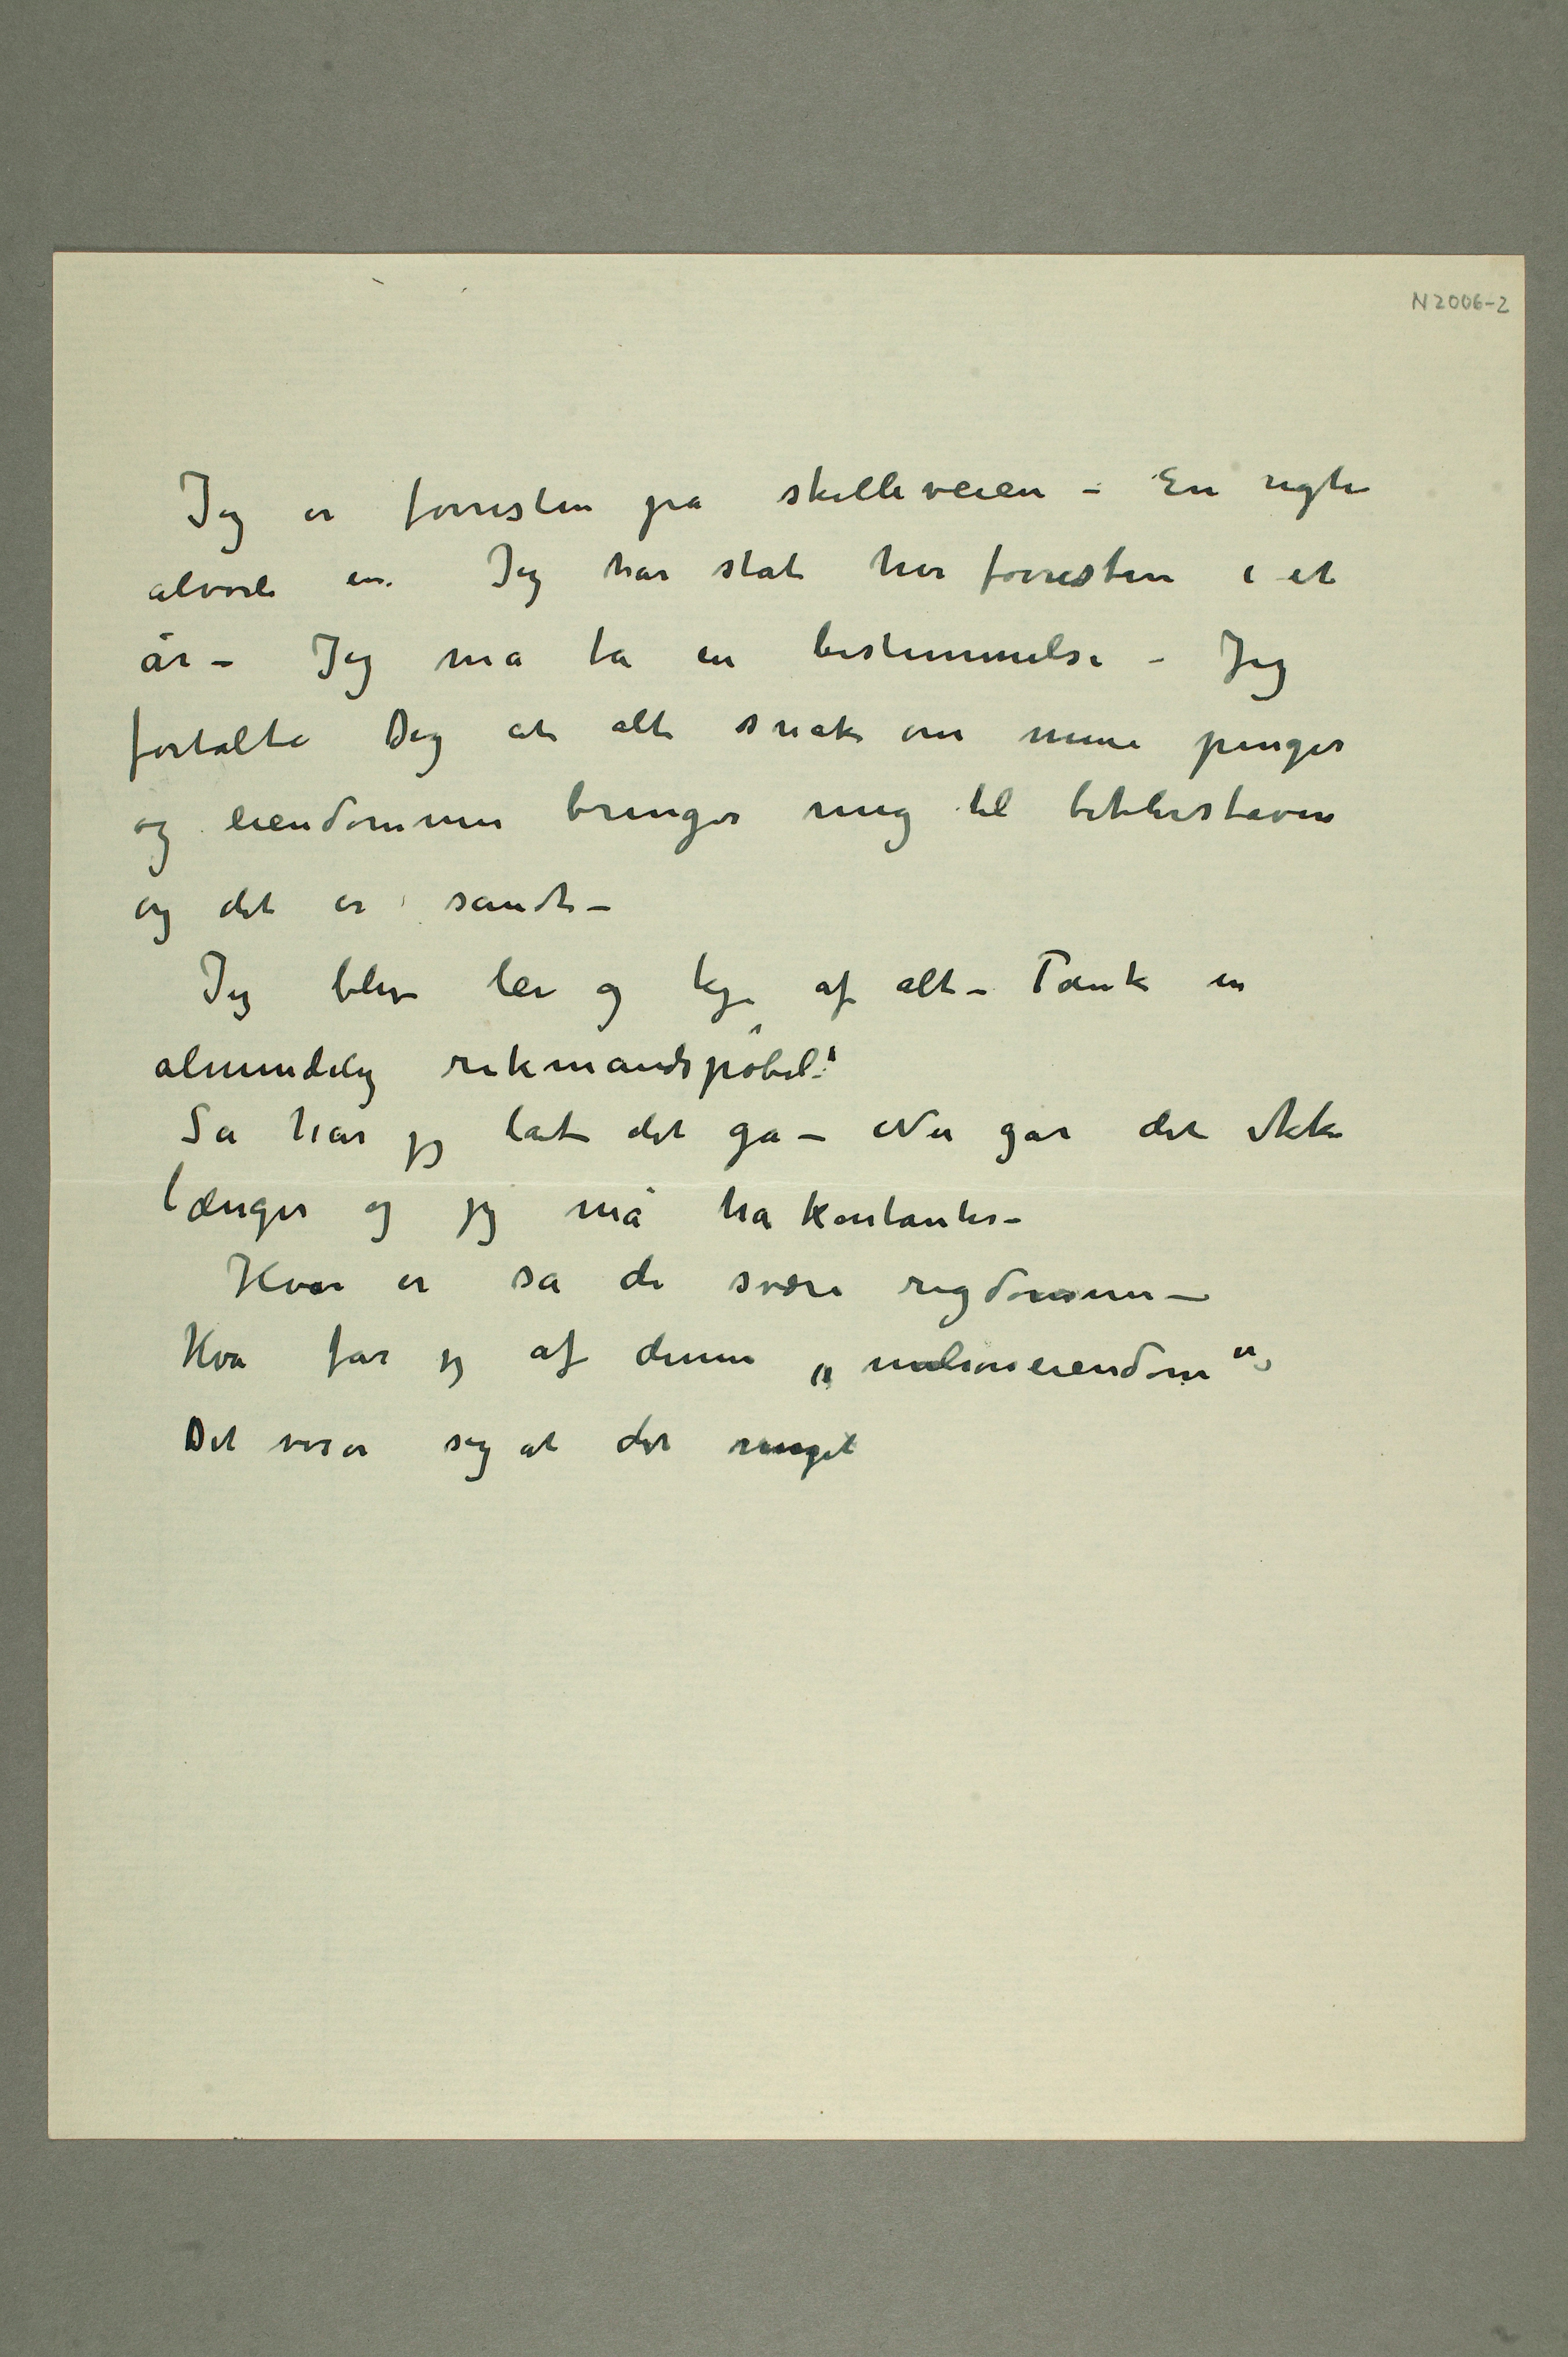 N 2006-2
Jeg er forresten på skilleveien – En rigti
alvorli en. Jeg harståt her forresten i et
år – Jeg må ta en bestemmelse – Jeg
fortalte Dig at alt snak om mine penger
og eiendommer bringer mig til bettlerstaven
og det er sandt –
Jeg blev lei og kje af alt – Tænk en
almindelig rikmandspøbel!
Så har jeg latt det gå – Nu går det ikke
længer og jeg må ha kontanter –
Hvor er så de svære rigdommer –
Hva får jeg af denne „milioneiendom“
Det viser sig at det meget